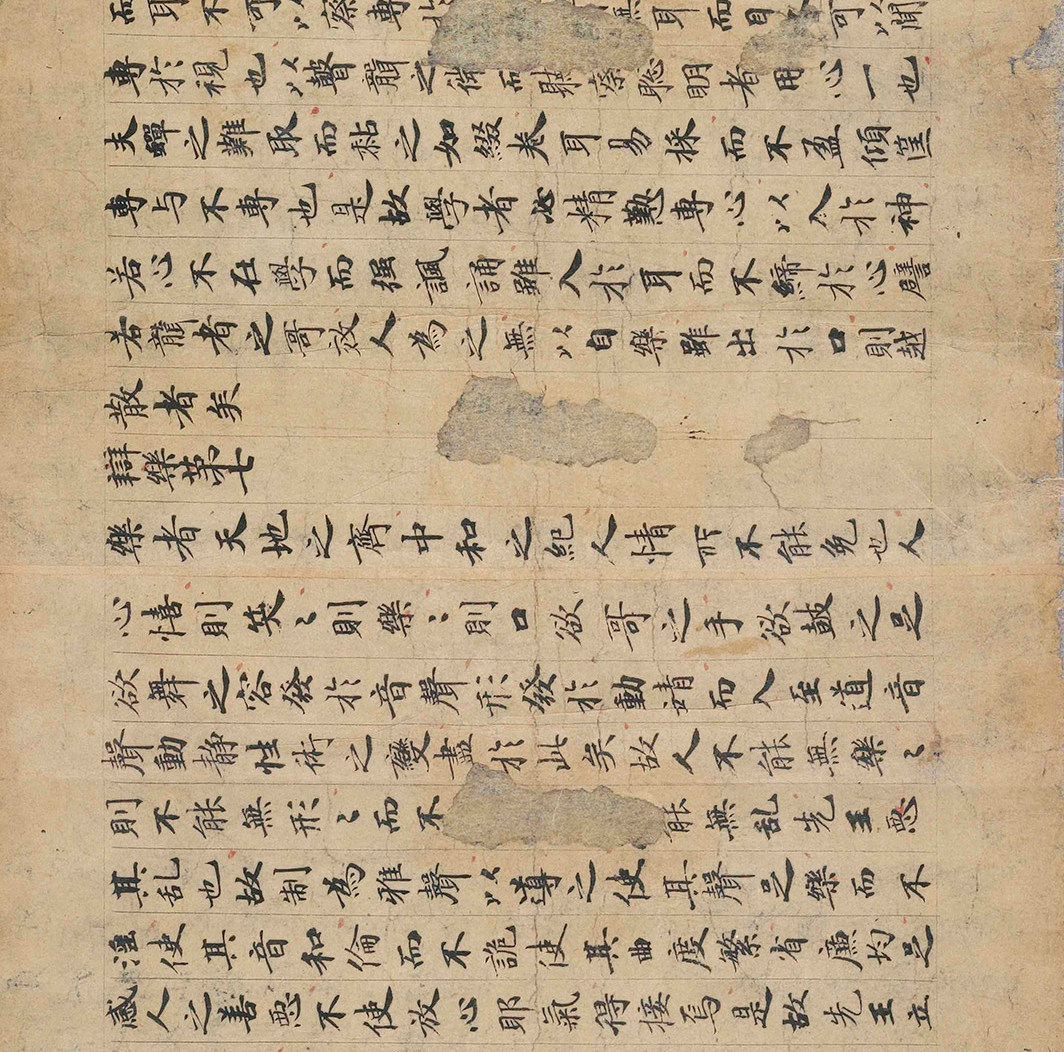 而耳不可以察專於無耳而目可以聞
專於視也以瞽聾之微而聴察聡明者用心一也
夫蟬之難取而黏之如綴卷耳易採而不盈傾筐
專与不專也是故學者必精懃專心以入於神
若心不在學而强諷誦雖入於耳而不締於心譬
若聾者之哥效人為之無以自樂雖出於口則越
散者矣
辯樂第七
樂者天地之齊中和之紀人情所不能免也人
心憘則笑〻則樂〻則口欲哥之手欲鼓之足
欲舞之容發於音聲形發於動靖而入至道音
聲動静性術之變盡於此矣故人不能無樂〻
則不能無形〻而不能無乱先王惡
其乱也故制為雅聲以導之使其聲足樂而不
淫使其音和倫而不詭使其曲度繁省廉均足
感人之善惡不使放心耶氣得接焉是故先王立